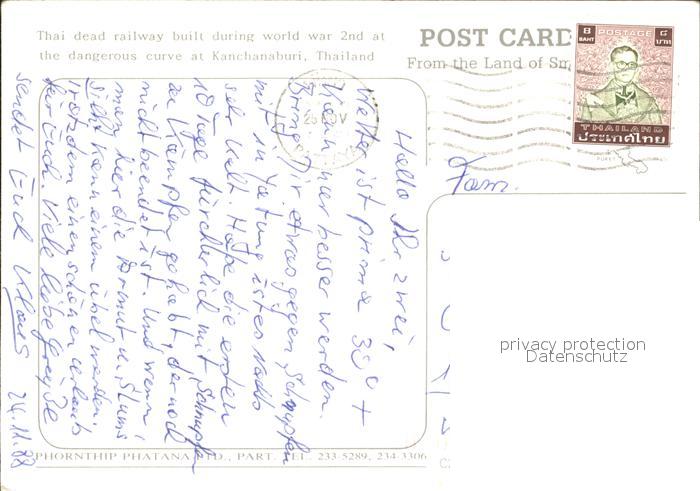 Thai dead railway built during world war 2nd at
the dangerous curve at Kanchanaburi, Thailand
POST CARD
From the Land of Sm
8
BAHT
POSTAGE
๘
บาท
THAILAND
ประเทศไทย
NOV
Hallo Ihr zwei,
Wetter ist prima 30° +
Kann nur besser werden.
Bringt mir etwas gegen Schnupfen
mit in ist es nachts
sehr kalt. Habe die ersten
10 Tage fürchterlich mit Schnupfen
zu kämpfen gehabt, der noch
nicht beendet ist. Und wenn
man hier die Armut u. Slums
sieht kann einem übel werden.
Trotzdem einen schönen Urlaub
für Euch. Viele liebe Grüße
sendet Euch Klaus 24.11.88
Fam.
privacy protection
Datenschutz
PHORNTHIP PHATANA LTD., PART. TEL. 233-5289, 234-3306